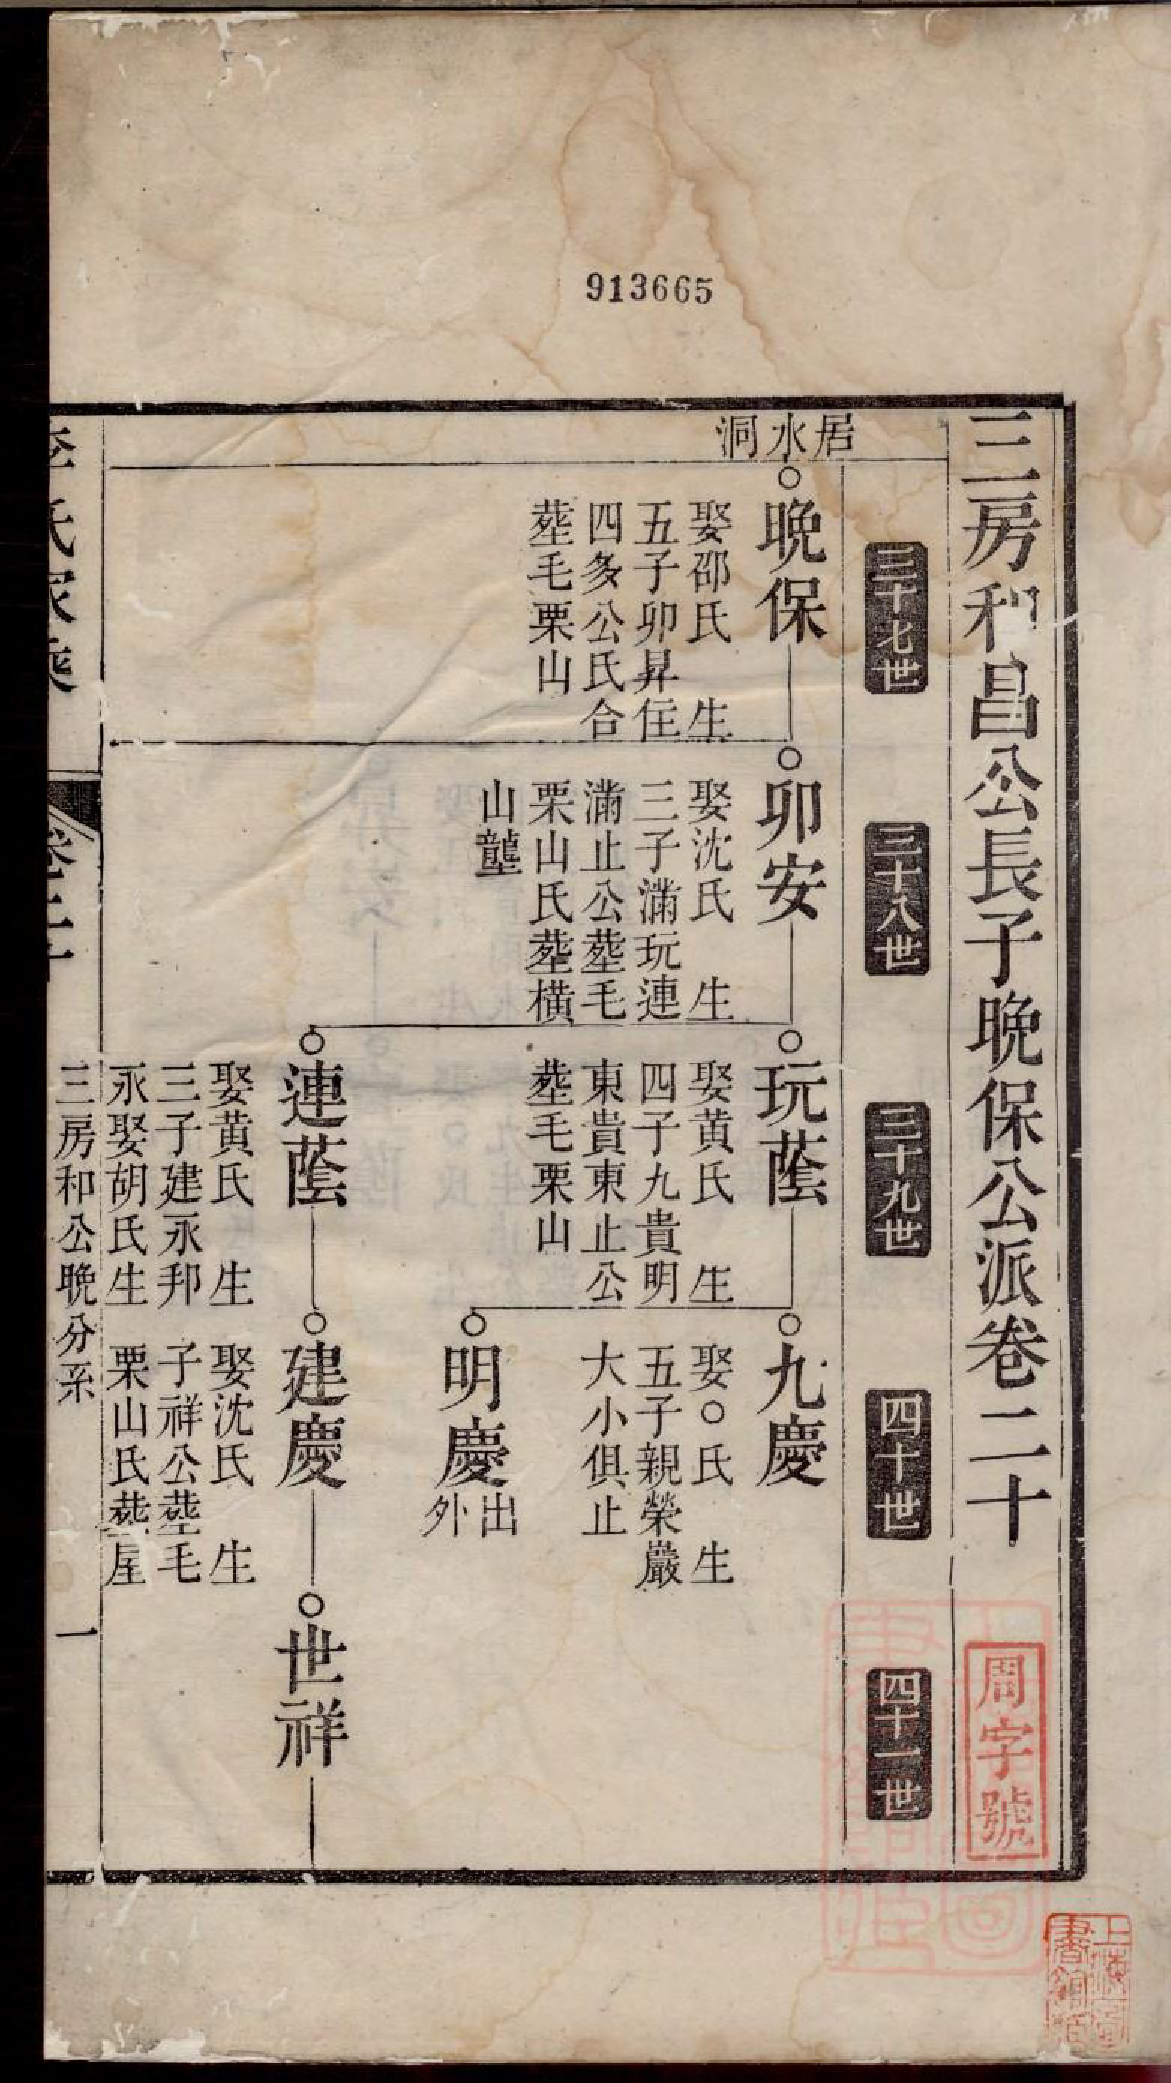 913665
三房和昌公長子晚保公派卷二十
周字號
三十七世
三十八世
三十九世
四十世
四十一世
居水洞
晚保
娶邵氏 生
五子卯昇住
四多公氏合
塟毛栗山
卯安
娶沈氏 生
三子滿玩連
滿止公塟毛
栗山氏塟橫
山蘴
玩蔭
娶黄氏 生
四子九貴明
東貴東止公
塟毛栗山
九慶
娶○氏 生
五子親榮嚴
大小俱止
明慶
出
外
連蔭
娶黄氏 生
三子建永邦
永娶胡氏生
建慶
娶沈氏 生
子祥公塟毛
栗山氏塟屋
世祥
李氏家乘
卷二十
三房和公晚分系
一
上海圖書館藏